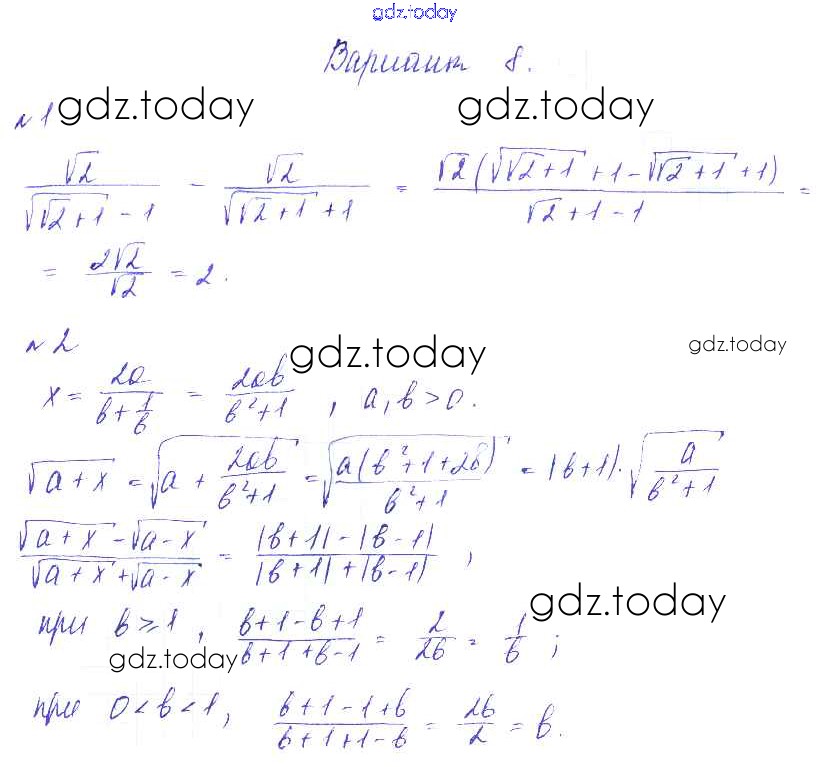 gdz.today
Вариант 8.
gdz.today gdz.today
№1
√2/(√(√2+1) - 1) - √2/(√(√2+1) + 1) = √2(√(√2+1) + 1 - √(√2+1) + 1)/(√2 + 1 - 1) =
= 2√2/√2 = 2.
№2
gdz.today gdz.today
x = 2a/(b + 1/b) = 2ab/(b²+1), a, b > 0.
√(a+x) = √(a + 2ab/(b²+1)) = √(a(b²+1+2b)/(b²+1)) = |b+1|·√(a/(b²+1))
(√(a+x) - √(a-x))/(√(a+x) + √(a-x)) = (|b+1| - |b-1|)/(|b+1| + |b-1|),
gdz.today
при b ≥ 1, (b+1-b+1)/(b+1+b-1) = 2/2b = 1/b;
gdz.today
при 0 < b < 1, (b+1-1+b)/(b+1+1-b) = 2b/2 = b.